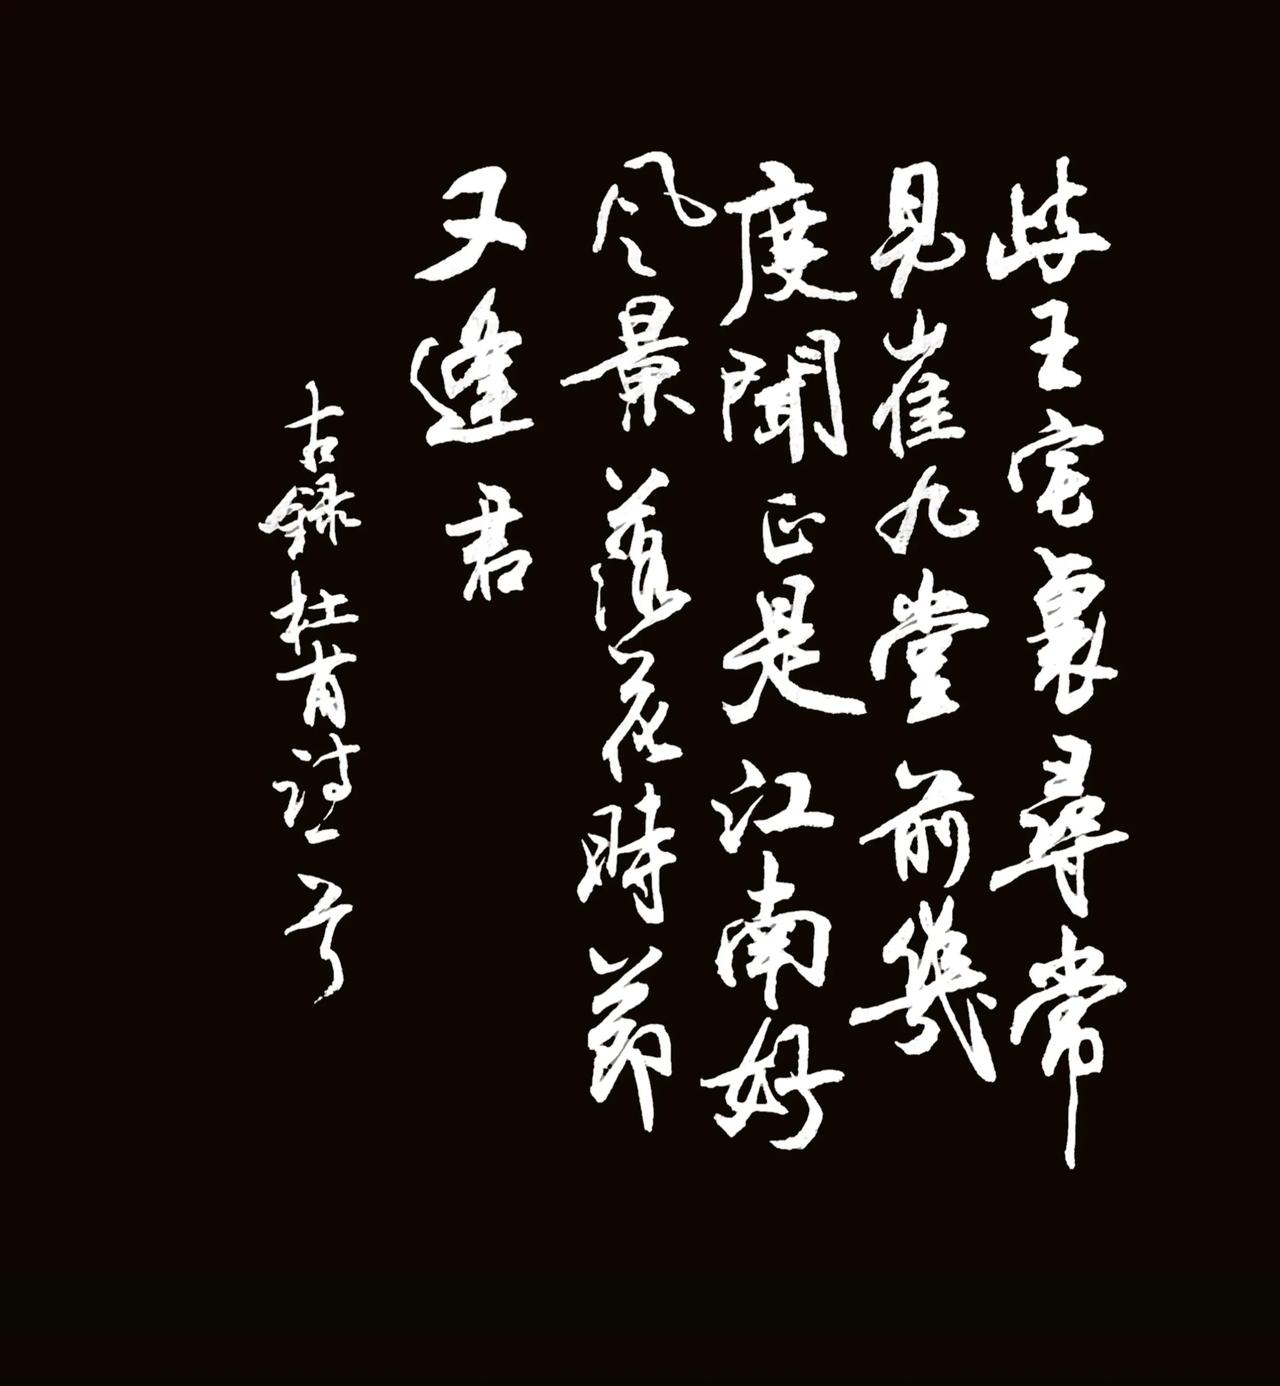 岐王宅裏尋常
見崔九堂前幾
度聞正是江南好
風景落花時節
又逢君
古録杜甫詩一首